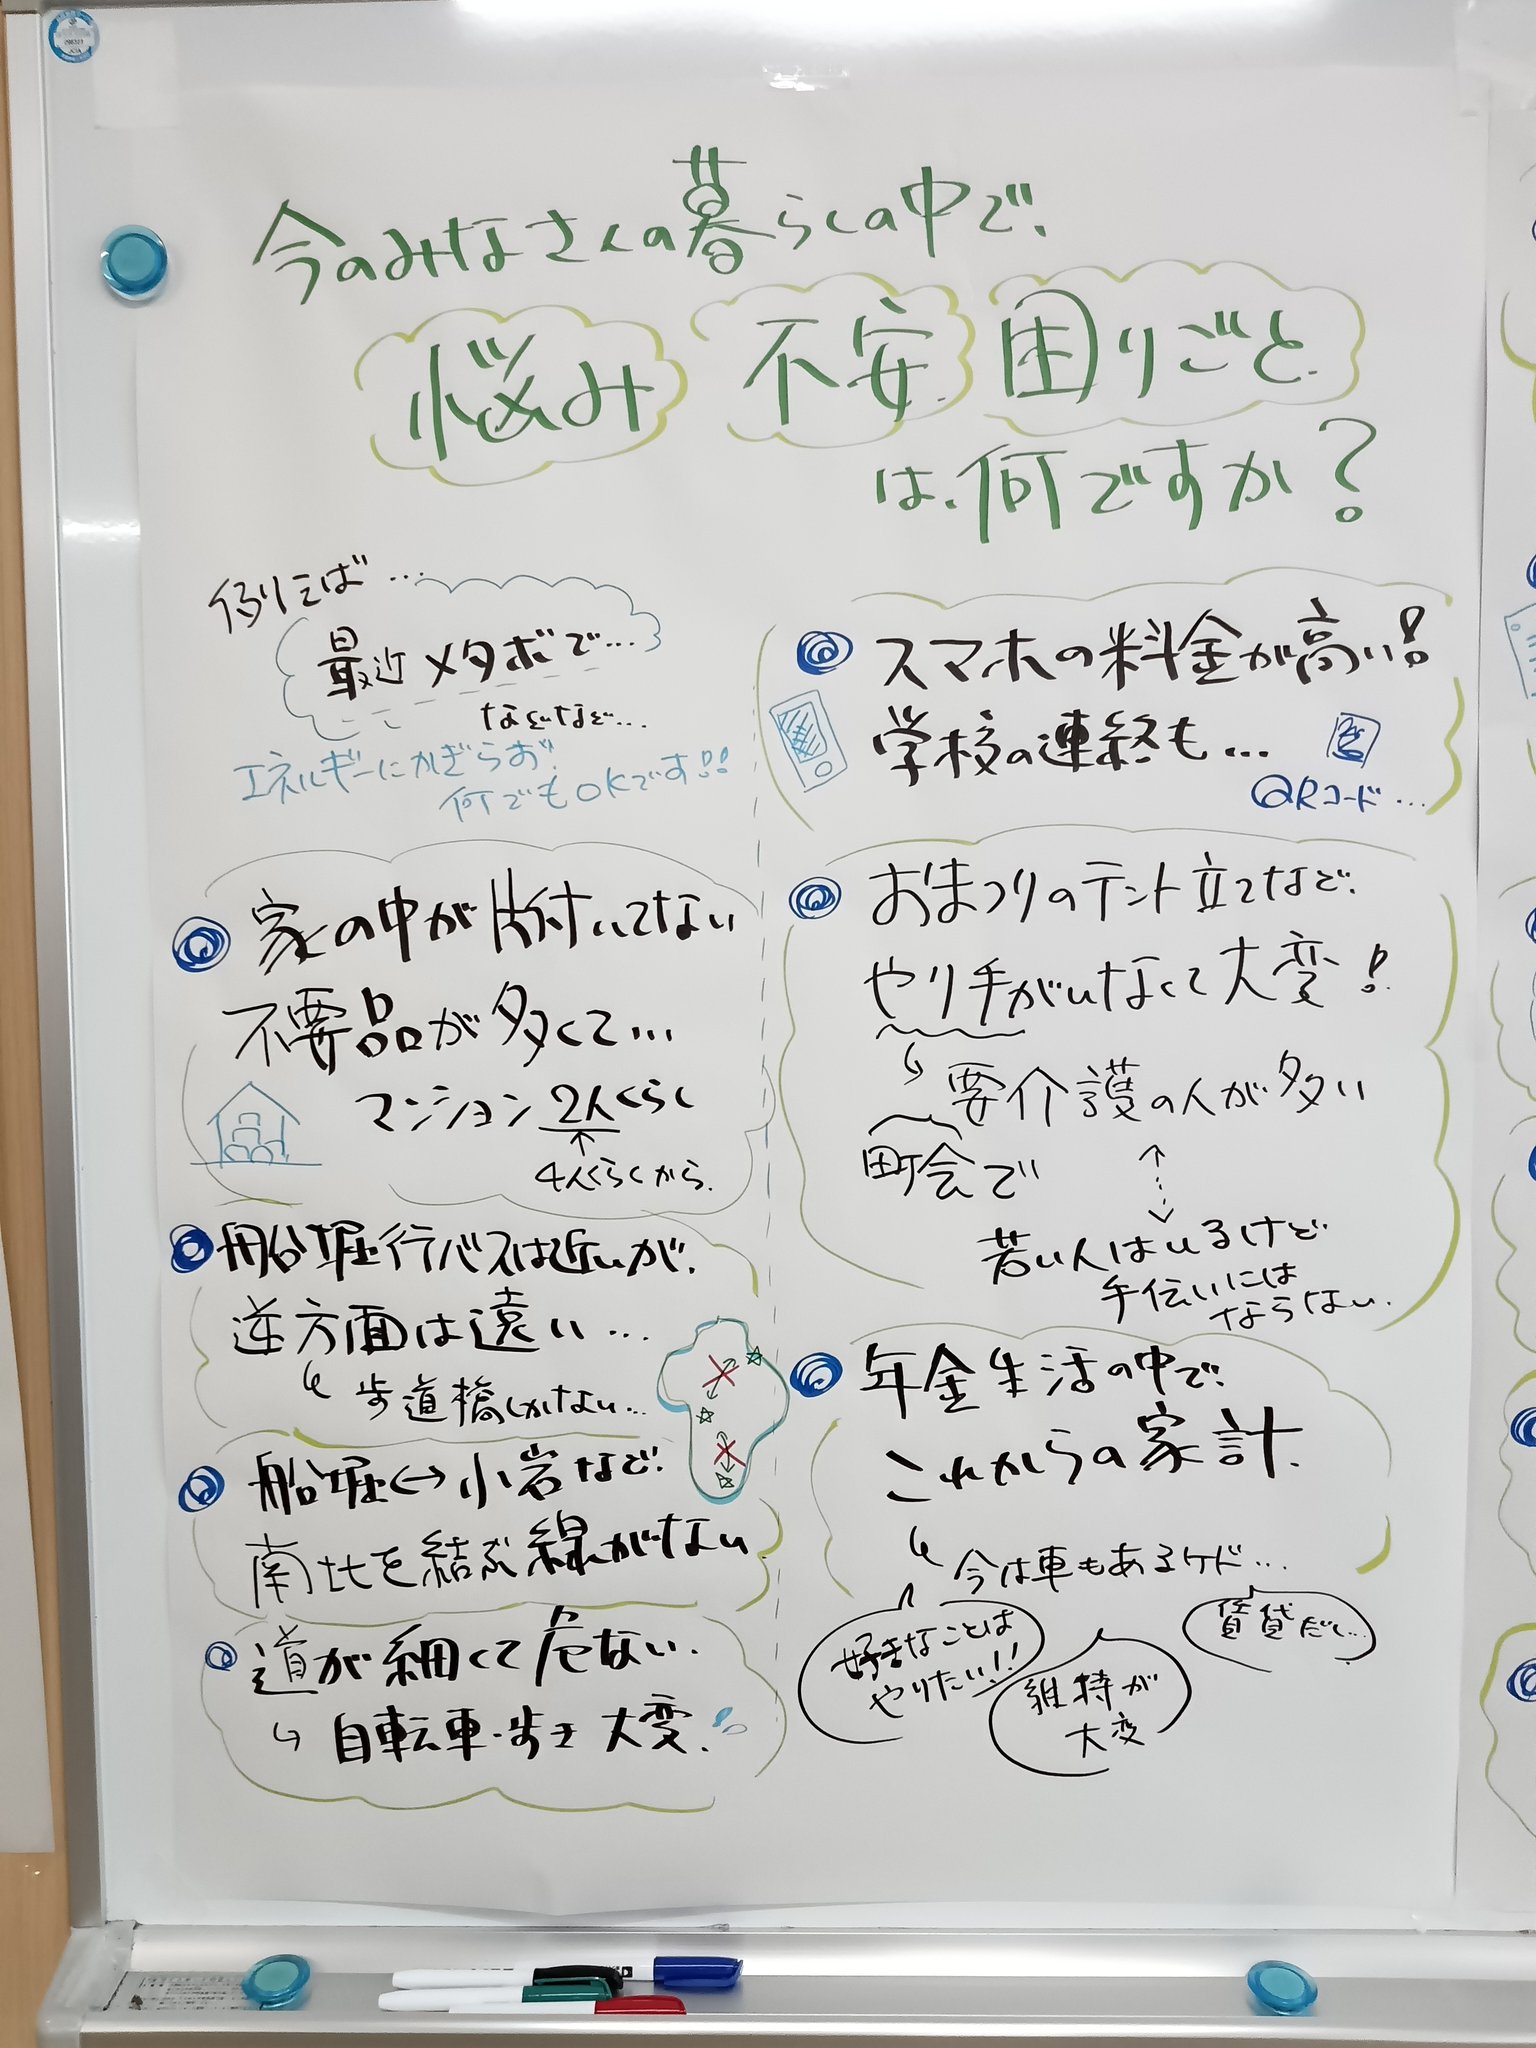 今のみなさんの暮らしの中で、
悩み 不安 困りごと
は、何ですか？
例えば…
最近メタボで…
などなど…
エネルギーにかぎらず！
何でもOKです!!
家の中が片付いてない
不要品が多くて…
マンション2人くらし
↑
4人くらしから
船堀行バスは近いが、
逆方面は遠い…
歩道橋しかない…
船堀↔小岩など、
南北を結ぶ線がない
道が細くて危ない、
自転車・歩き 大変、
スマホの料金が高い!
学校の連絡も…
QRコード…
おまつりのテント立てなど、
やり手がいなくて大変!
要介護の人が多い
町会で
若い人はいるけど
手伝いには
ならない、
年金生活の中で、
これからの家計、
今は車もあるケド…
好きなことは
やりたい!!
維持が
大変
賃貸だし…